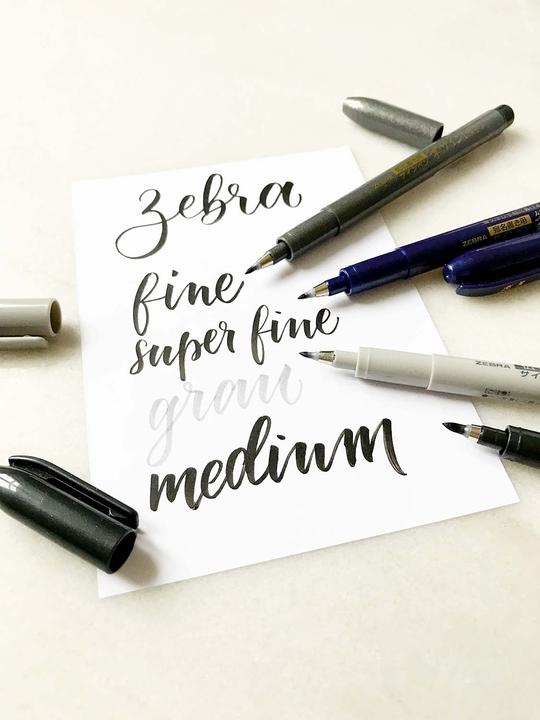 zebra
fine
super fine
grau
medium
ZEBRA
ZEBRA
サイ